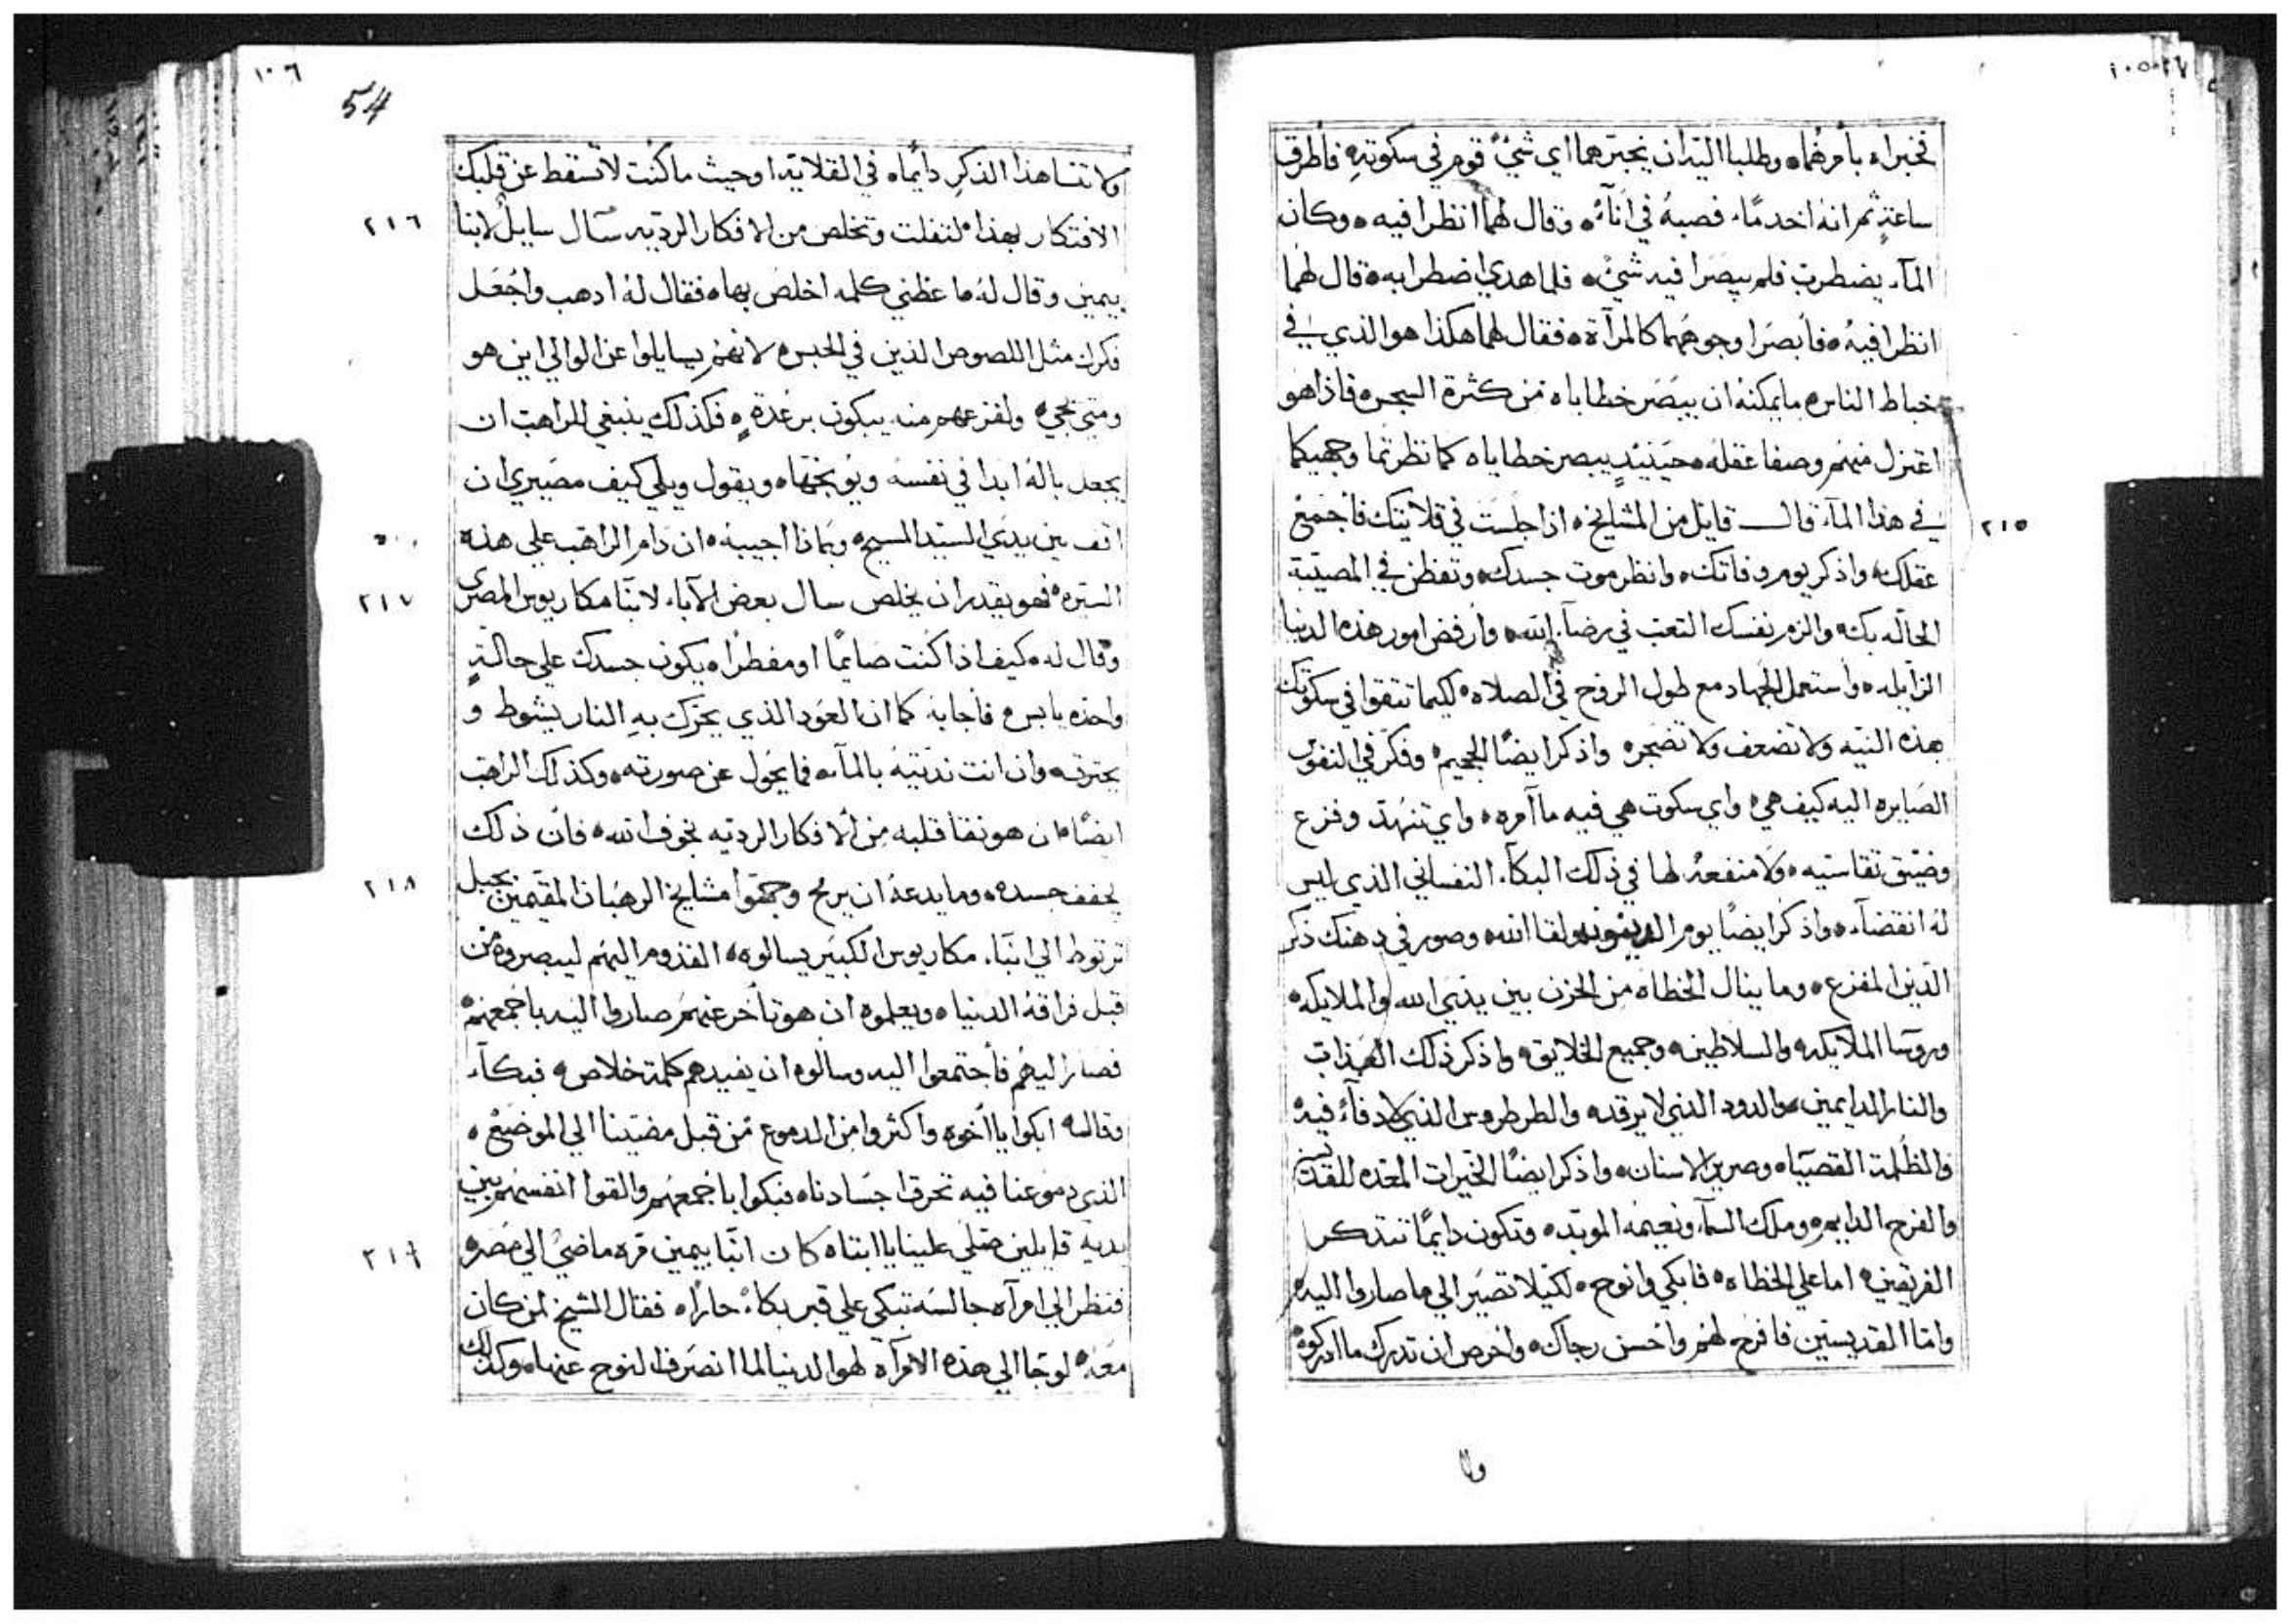 فخبراه بأمرهما ه وطلبا اليه ان يخبرهما اي شيً قوم في سكوته فأطرق
ساعةٍ ثم انه اخد مآء فصبه في انآء ه وقال لهما انظرا فيه ه وكان
المآء يضطرب فلم يبصرا فيه شيء ه فلما هدي اضطرابه ه قال لهما
انظرا فيه ه فأبصرا وجوههما كالمرآة ه فقال لهما هكذا هو الذي في
خباط الناس ه ما يمكنه ان يبصر خطاياه من كثرة السجس ه فاذا هو
اعتزل منهم وصفا عقله ه حينيدٍ يبصر خطاياه كما نظرتما وجهيكما
في هذا المآء قال قايل من المشايخ ه اذا جلست في قلايتك فأجمع
٢١٥
عقلك ه واذكر يوم وفاتك ه وانظر موت جسدك ه وتفطن في المصيبة
الحاله بك ه والزم نفسك التعب في رضآء الله ه وأرفض امور هذه الدنيا
الزايله ه وأستعمل الجهاد مع طول الروح في الصلاه ه لكيما تتقوا في سكوتك
بهذه النيه ولا تضعف ولا تضجر ه واذكر ايضًا الجحيم ه وفكر في النفوس
الصايره اليه كيف هي ه واي سكوت هي فيه ما آمره ه واي تنهد وفزع
وضيق تقاسيه ه ولا منفعه لها في ذلك البكآء النفساني الذي ليس
له انقضآء ه واذكر ايضًا يوم الدينونه ولقا الله ه وصور في دهنك ذكر
الدين المفزع ه وما ينال الخطاه من الحزن بين يدي الله والملايكه ه
وروسا الملايكه والسلاطين ه وجميع الخلايق ه واذكر ذلك العذاب
والنار الدايمين ه والدود الذي لا يرقد ه والطرطروس الذي لا دفآء فيه ه
والظلمة القصيا ه وصرير الاسنان ه واذكر ايضًا الخيرات المعده للقديسين
والفرح الدايم ه وملك السمآء ونعيمه الموبد ه وتكون دايمًا تتدكر
الفريقين ه اما علي الخطاه ه فابكي وانوح ه لكيلا تصير الي ما صاروا اليه ه
واما القديسين فافرح لهم وأحسن رجاك ه واحرص ان تدرك ما ادركوه ه
ولا
١٠٦
54
ولا تنسا هذا الذكر دايما ه في القلايه او حيث ما كنت لا تسقط عن قلبك
الافتكار بهذا ه لتفلت وتخلص من الافكار الرديه سآل سايل لانبا
٢١٦
بيمين وقال له ما عظني كلمه اخلص بها ه فقال له ادهب واجعل
فكرك مثل اللصوص الذين في الحبس ه لانهم يسايلوا عن الوالي اين هو
ومتي يجي ه ولفزعهم منه يبكون برعدةٍ ه فكذلك ينبغي للراهب ان
يجعل باله ابدا في نفسه ويوبخها ه ويقول ويلي كيف مصيري ان
اقف بين يدي السيد المسيح ه وبماذا اجيبه ه ان دام الراهب علي هذه
السيره ه فهو يقدر ان يخلص سال بعض الآباء لانبا مكاريوس المصري
٢١٧
وقال له ه كيف اذا كنت صايمًا او مفطرا ه يكون جسدك علي حالةٍ
واحده يابس ه فأجابه كما ان العود الذي يحرك به النار يشوط و
يحترق ه وان انت نديته بالمآء ه فما يحول عن صورته ه وكذلك الراهب
ايضًا ه ان هو نقا قلبه من الافكار الرديه بخوف الله ه فان ذلك
يجفف جسده ه وما يدعه ان يربح وجهوا مشايخ الرهبان المقيمين بجبل
٢١٨
ترنوط الي انبا مكاريوس الكبير يسالوه ه القدوم اليهم ليبصروه من
قبل فراقه الدنيا ه ويعلموه ان هو تأخر عنهم صاروا اليه باجمعهم ه
فصار اليهم فأجتمعوا اليه وسالوه ان يفيدهم كلمة خلاص ه فبكآء
وقال ه ابكوا يا اخوه واكثروا من الدموع من قبل مضينا الي الموضع ه
الذي دموعنا فيه تحرق اجسادنا ه فبكوا باجمعهم والقوا انفسهم بين
يديه قايلين صلي علينا يا ابتاه كان انبا بيمين مره ماضي الي مصر ه
٢١٩
فنظر الي امرآه جالسه تبكي علي قبر بكاءً حارًا ه فقال الشيخ لمن كان
معه ه لو جا الي هذه الامرآه لهو الدنيا لما انصرف النوح عنها ه وكذلك